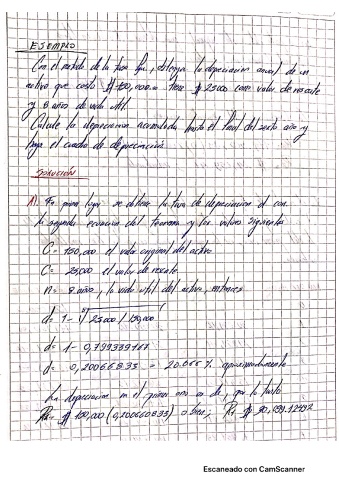 EJEMPLO
Con el metodo de la tasa fija, obtenga la depreciacion anual de un
activo que costo $ 150,000.00 tiene $ 25000 como valor de rescate
y 8 años de vida util
Calcule la depreciacion acumulada hasta el final del sexto año y
haga el cuadro de depreciación
SOLUCIÓN
A) En primer lugar se obtiene la tasa de depreciacion d con
la segunda ecuacion del teorema y los valores siguientes
C= 150,000 el valor original del activo
C= 25,000 el valor de rescate
n= 8 años, la vida util del activo, entonces
d= 1- √25000/150,000
d= 1- 0,799339167
d= 0,20066833 = 20.066% aproximadamente
La depreciacion en el primer año es de, por lo tanto
$ 150,000 (0,200660833) o bien,
Escaneado con CamScanner